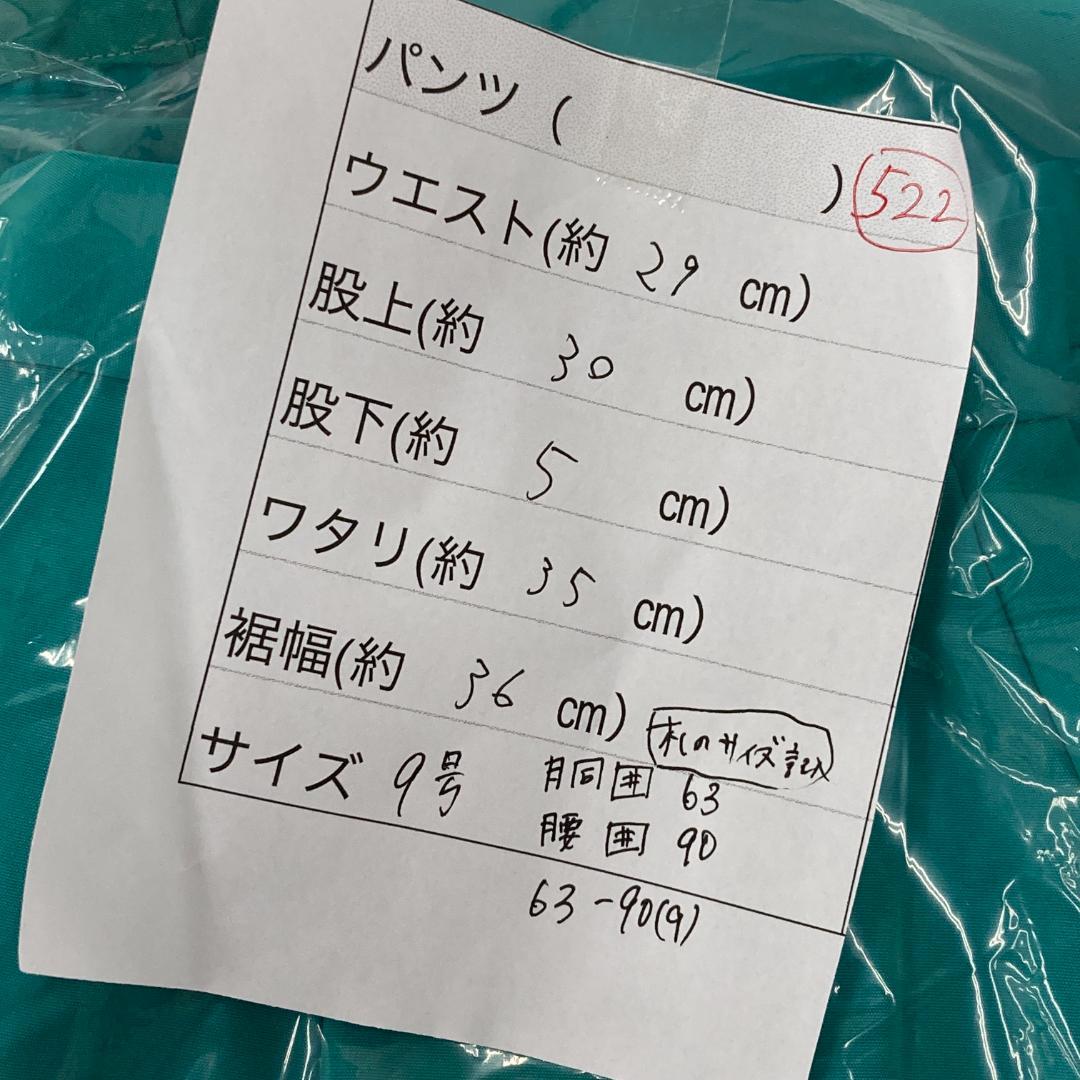 パンツ ( ) 522
ウエスト(約 29 cm)
股上(約 30 cm)
股下(約 5 cm)
ワタリ(約 35 cm)
裾幅(約 36 cm)
札のサイズ記入
サイズ 9号
胴囲 63
腰囲 90
63-90(9)